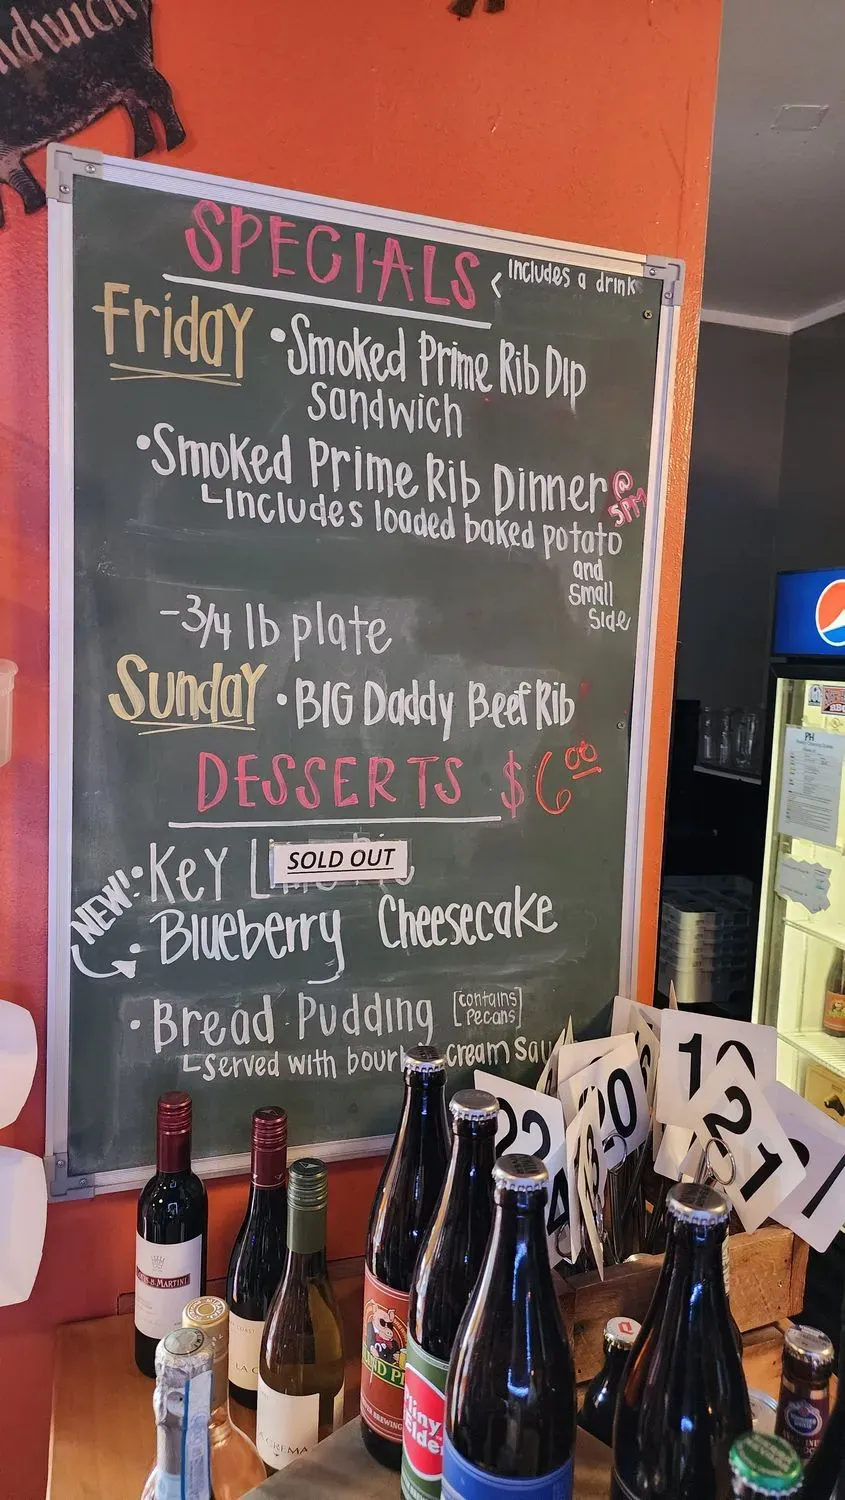 SPECIALS
< Includes a drink
Friday
•Smoked Prime Rib Dip
Sandwich
•Smoked Prime Rib Dinner @ 5PM
Includes loaded baked potato
and
small
side
-3/4 lb plate
Sunday •BIG Daddy Beef Rib
DESSERTS $6.00
NEW!
•Key
SOLD OUT
•Blueberry Cheesecake
•Bread Pudding [contains
pecans]
Served with cream
PH
MARTINI
LA
CREMA
Pliny
Elder
22
20
10
21